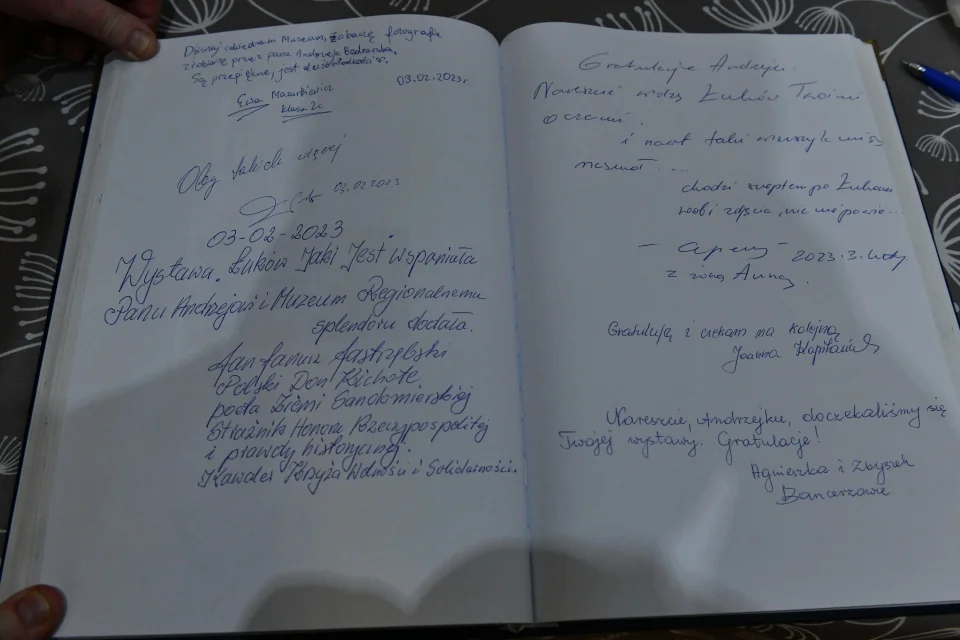 Dzisiaj odwiedziłam Muzeum, zobaczę fotografie
zrobione przez pana Andrzeja
Są przepiękne, jest
03.02.2023r
Ewa Mazurkiewicz
klasa 2c
Oby takich więcej
02.02.2023
03-02-2023
Wystawa. Łuków Jaki Jest Wspaniała
Panu Andrzejowi i Muzeum Regionalnemu
splendoru dodała.
Jan Janusz Jastrzębski
Polski Don Kichote
poeta Ziemi Sandomierskiej
Strażnik Honoru Rzeczypospolitej
i prawdy historycznej.
Kawaler Krzyża Wolności i Solidarności.
Gratulacje Andrzeju.
Nareszcie widzę Łuków Twoimi
oczami.
i nawet taki wierszyk mi się
...
chodzi po Łukowie
robi zdjęcia, nic nie powie...
2023.3.luty
z żoną Anną.
Gratuluję i czekam na kolejną
Joanna
Nareszcie, Andrzejku, doczekaliśmy się
Twojej wystawy. Gratulacje!
Agnieszka i Zbyszek
Bancerzowie